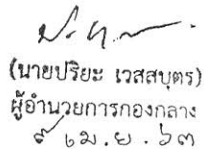 (นายปริยะ เวสสบุตร)
ผู้อำนวยการกองกลาง
๙ เม.ย. ๖๓